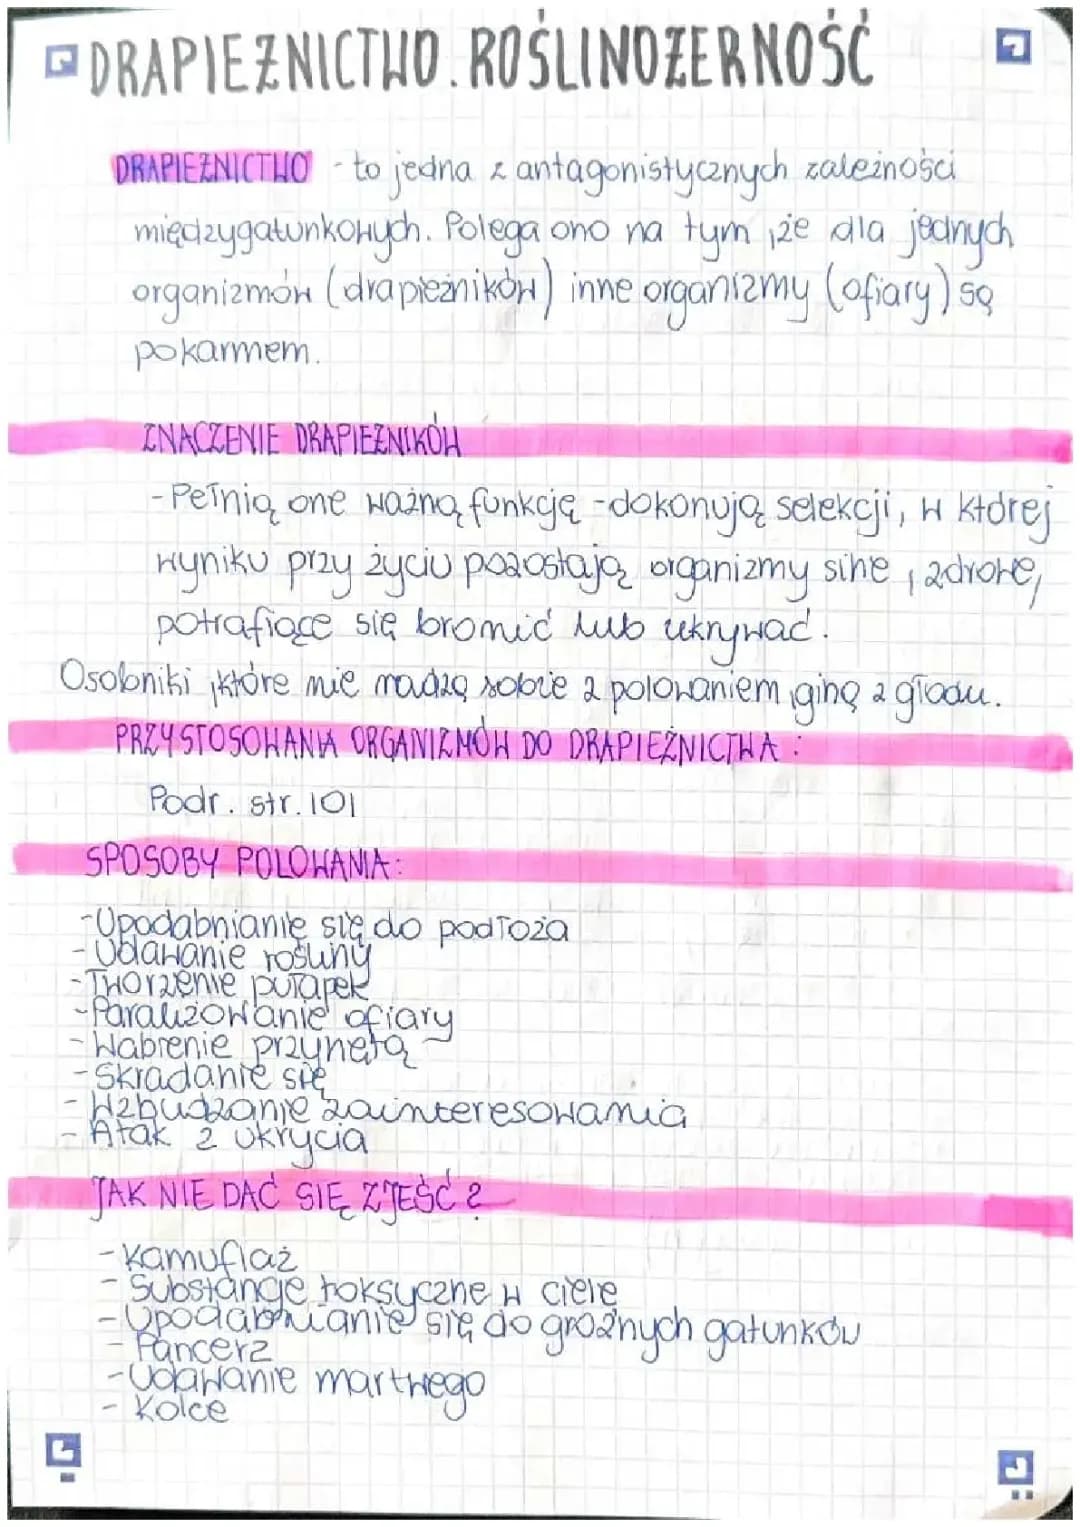 DRAPIEŻNICTWO. ROŚLINOŻERNOŚĆ
DRAPIEŻNICTWO - to jedna z antagonistycznych zależności
międzygatunkowych. Polega ono na tym, że dla jednych
organizmów (drapieżników) inne organizmy (ofiary) są
pokarmem.
ZNACZENIE DRAPIEŻNIKÓW
- Pełnią one ważną funkcję - dokonują selekcji, w której
wyniku przy życiu pozostają organizmy silne, zdrowe,
potrafiące się bronić lub ukrywać.
Osobniki, które nie radzą sobie z polowaniem, giną z głodu.
PRZYSTOSOWANIA ORGANIZMÓW DO DRAPIEŻNICTWA:
Podr. str. 101
SPOSOBY POLOWANIA:
- Upodabnianie się do podłoża
- Udawanie rośliny
- Tworzenie pułapek
- Paraliżowanie ofiary
- Wabienie przynętą
- Skradanie się
- Wzbudzanie zainteresowania
- Atak z ukrycia
JAK NIE DAĆ SIĘ ZJEŚĆ?
- Kamuflaż
- Substancje toksyczne w ciele
- Upodabnianie się do groźnych gatunków
- Pancerz
- Udawanie martwego
- Kolce